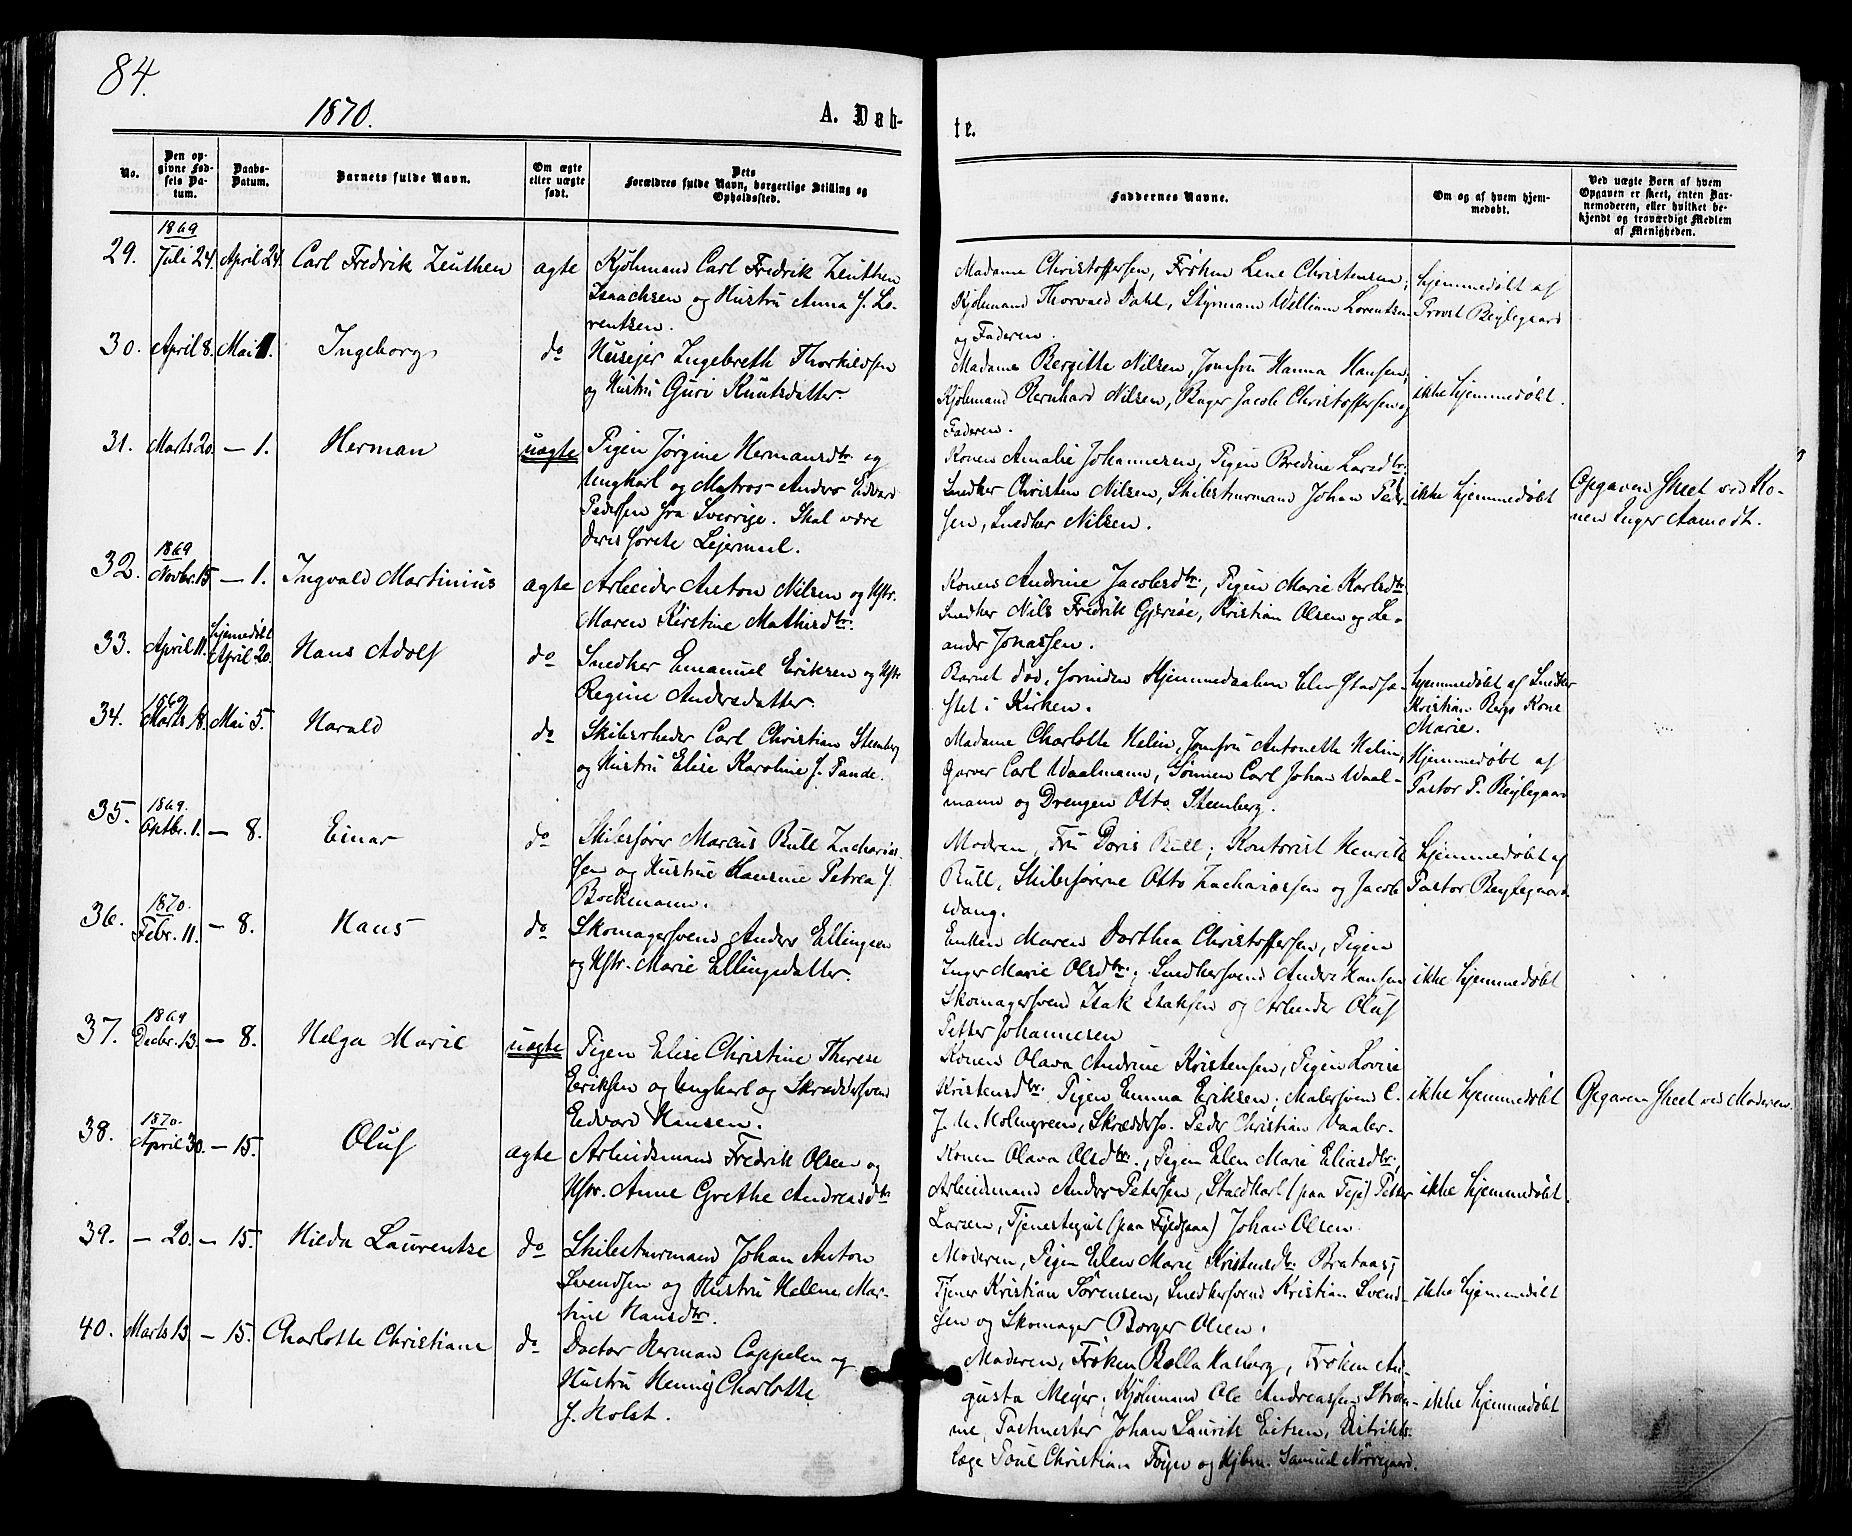 84.
1870.
A. Døb-
te.
No.
Den op-
givne Fød-
sels Da-
tum.
Daabs-
Datum.
Barnets fulde Navn.
Om ægte
eller uægte
født.
Dets
Forældres fulde Navn, borgerlige Stilling og
Opholdssted.
Faddernes Navne.
Om og af hvem hjem-
medøbt.
Ved uægte Børn af hvem
Opgaven er skeet, enten Bar-
nemoderen, eller hvilket be-
kjendt og troværdigt Medlem
af Menigheden.
29. 1869 Juli 24. April 24. Carl Fredrik Zeuthen ægte
Kjöbmand Carl Fredrik Zeuthen
Isaachsen og Hustru Anna f. Lo-
rentsen.
Madame Christoffersen, Fröken Lene Christensen,
Kjöbmand Thorvald Dahl, Styrmann William Lorentsen
og Faderen.
hjemmedöbt af
Provst Bejlegaard
30. April 8. Mai 1. Ingeborg do
Husejer Ingebreth Thorkildsen
og Hustru Guri Knutsdatter
Madame Bergitte Nilsen, Jomfru Hanna Hansen,
Kjöbmand Bernhard Nilsen, Bager Jacob Christoffersen og
Faderen.
ikke hjemmedöbt.
31. Marts 20. — 1. Herman uægte
Pigen Jörgine Hermansdtr. og
Ungkarl og Matros Anders Edvard
Pedersen fra Sverrige. Skal være
deres förste Lejermaal.
Konen Amalie Johannesen, Pigen Bredine Larsdtr.
Snedker Christen Nilsen, Skibstuurmand Johan Peder-
sen, Snedker Nilsen.
ikke hjemmedöbt
Opgaven skeet ved Ko-
nen Inger Aamodt.
32. 1869 Novbr. 15 — 1. Ingvald Martinius ægte
Arbeider Anton Nilsen og Hstr.
Maren Kirstine Mathisdtr.
Konen Andrine Jacobsdtr., Pigen Marie Karlsdtr.
Snedker Nils Fredrik Gjeriöe, Kristian Olsen og Le-
ander Jonassen.
33. April 11. hjemmedöbt April 20. Hans Adolf do
Snedker Emanuel Eriksen og Hstr.
Regine Andersdatter.
Barnet död, forinden Hjemmedaaben blev stadfæ-
stet i Kirken.
hjemmedöbt af Snedker
Kristian Bergs Kone
Marie.
34. 1869 Marts 18. Mai 5. Harald do
Skibsrheder Carl Christian Steenberg
og Hustru Elise Karoline f. Tande.
Madame Charlotte Helin, Jomfru Antonette Helin,
Garver Carl Waalmann, Sönnen Carl Johan Waal-
mann og Drengen Otto Steenberg.
Hjemmedöbt af
Pastor P. Bejlegaard
35. 1869. Octbr. 1. — 8. Einar do
Skibsförer Marcus Bull Zacharias-
sen og Hustrue Hansine Petrea f.
Bockmann.
Modren, Fru Doris Bull, Kontorist Henrik
Bull, Skibsförerne Otto Zachariassen og Jacob
Wang.
hjemmedöbt af
Pastor Bejlegaard
36. 1870. Febr. 11. — 8. Hans do
Skomagersvend Anders Ellingsen
og Hstr. Marie Ellingsdatter.
Enken Maren Dorthea Christoffersen, Pigen
Inger Marie Olsdtr., Snedkersvend Anders Hansen
Skomagersvend Isak Isaksen og Arbeider Oluf
Petter Johannesen
ikke hjemmedöbt
37. 1869 Decbr. 13. — 8. Helga Marie uægte
Pigen Elise Christine Therese
Eriksen og Ungkarl og Skræddersvend
Edvard Hansen.
Konen Olava Andrine Kristensen, Pigen Lovise
Kristensdtr. Pigen Emma Eriksen, Malersvend C.
J. U. Holmgreen, Skræddersv. Peder Christian Vaaler.
ikke hjemmedöbt
Opgaven skeet ved Moderen.
38. 1870. April 30. — 15. Oluf ægte
Arbeidsmand Fredrik Olsen og
Hstr. Anne Grethe Andreasdtr
Konen Olava Olsdtr., Pigen Elen Marie Eliasdtr.,
Arbeidsmand Anders Petersen, Staldkarl (paa Feje) Petter
Larsen, Tjenestegut (paa ) Johan Olsen
ikke hjemmedöbt.
39. — 20. — 15. Hilda Laurentze do
Skibstuurmand Johan Anton
Svendsen og Hustru Helene Mar-
tine Hansdtr.
Moderen, Pigen Elen Marie Kristensdtr. Brataas,
Tjener Kristian Sörensen, Snedkersvend Kristian Svend-
sen og Skomager Borger Olsen.
ikke hjemmedöbt
40. Marts 13. — 15. Charlotte Christiane do
Doctor Herman Cappelen og
Hustru Henny Charlotte
f. Holst.
Moderen, Fröken Bolla Aasberg, Fröken Au-
gusta Mejer, Kjöbmand Ole Andreassen Ström-
me, Postmester Johan Laurits Eitsen, Distrikts-
læge Poul Christian Foyn og Kjbm. Samuel Nörregaard.
ikke hjemmedöbt